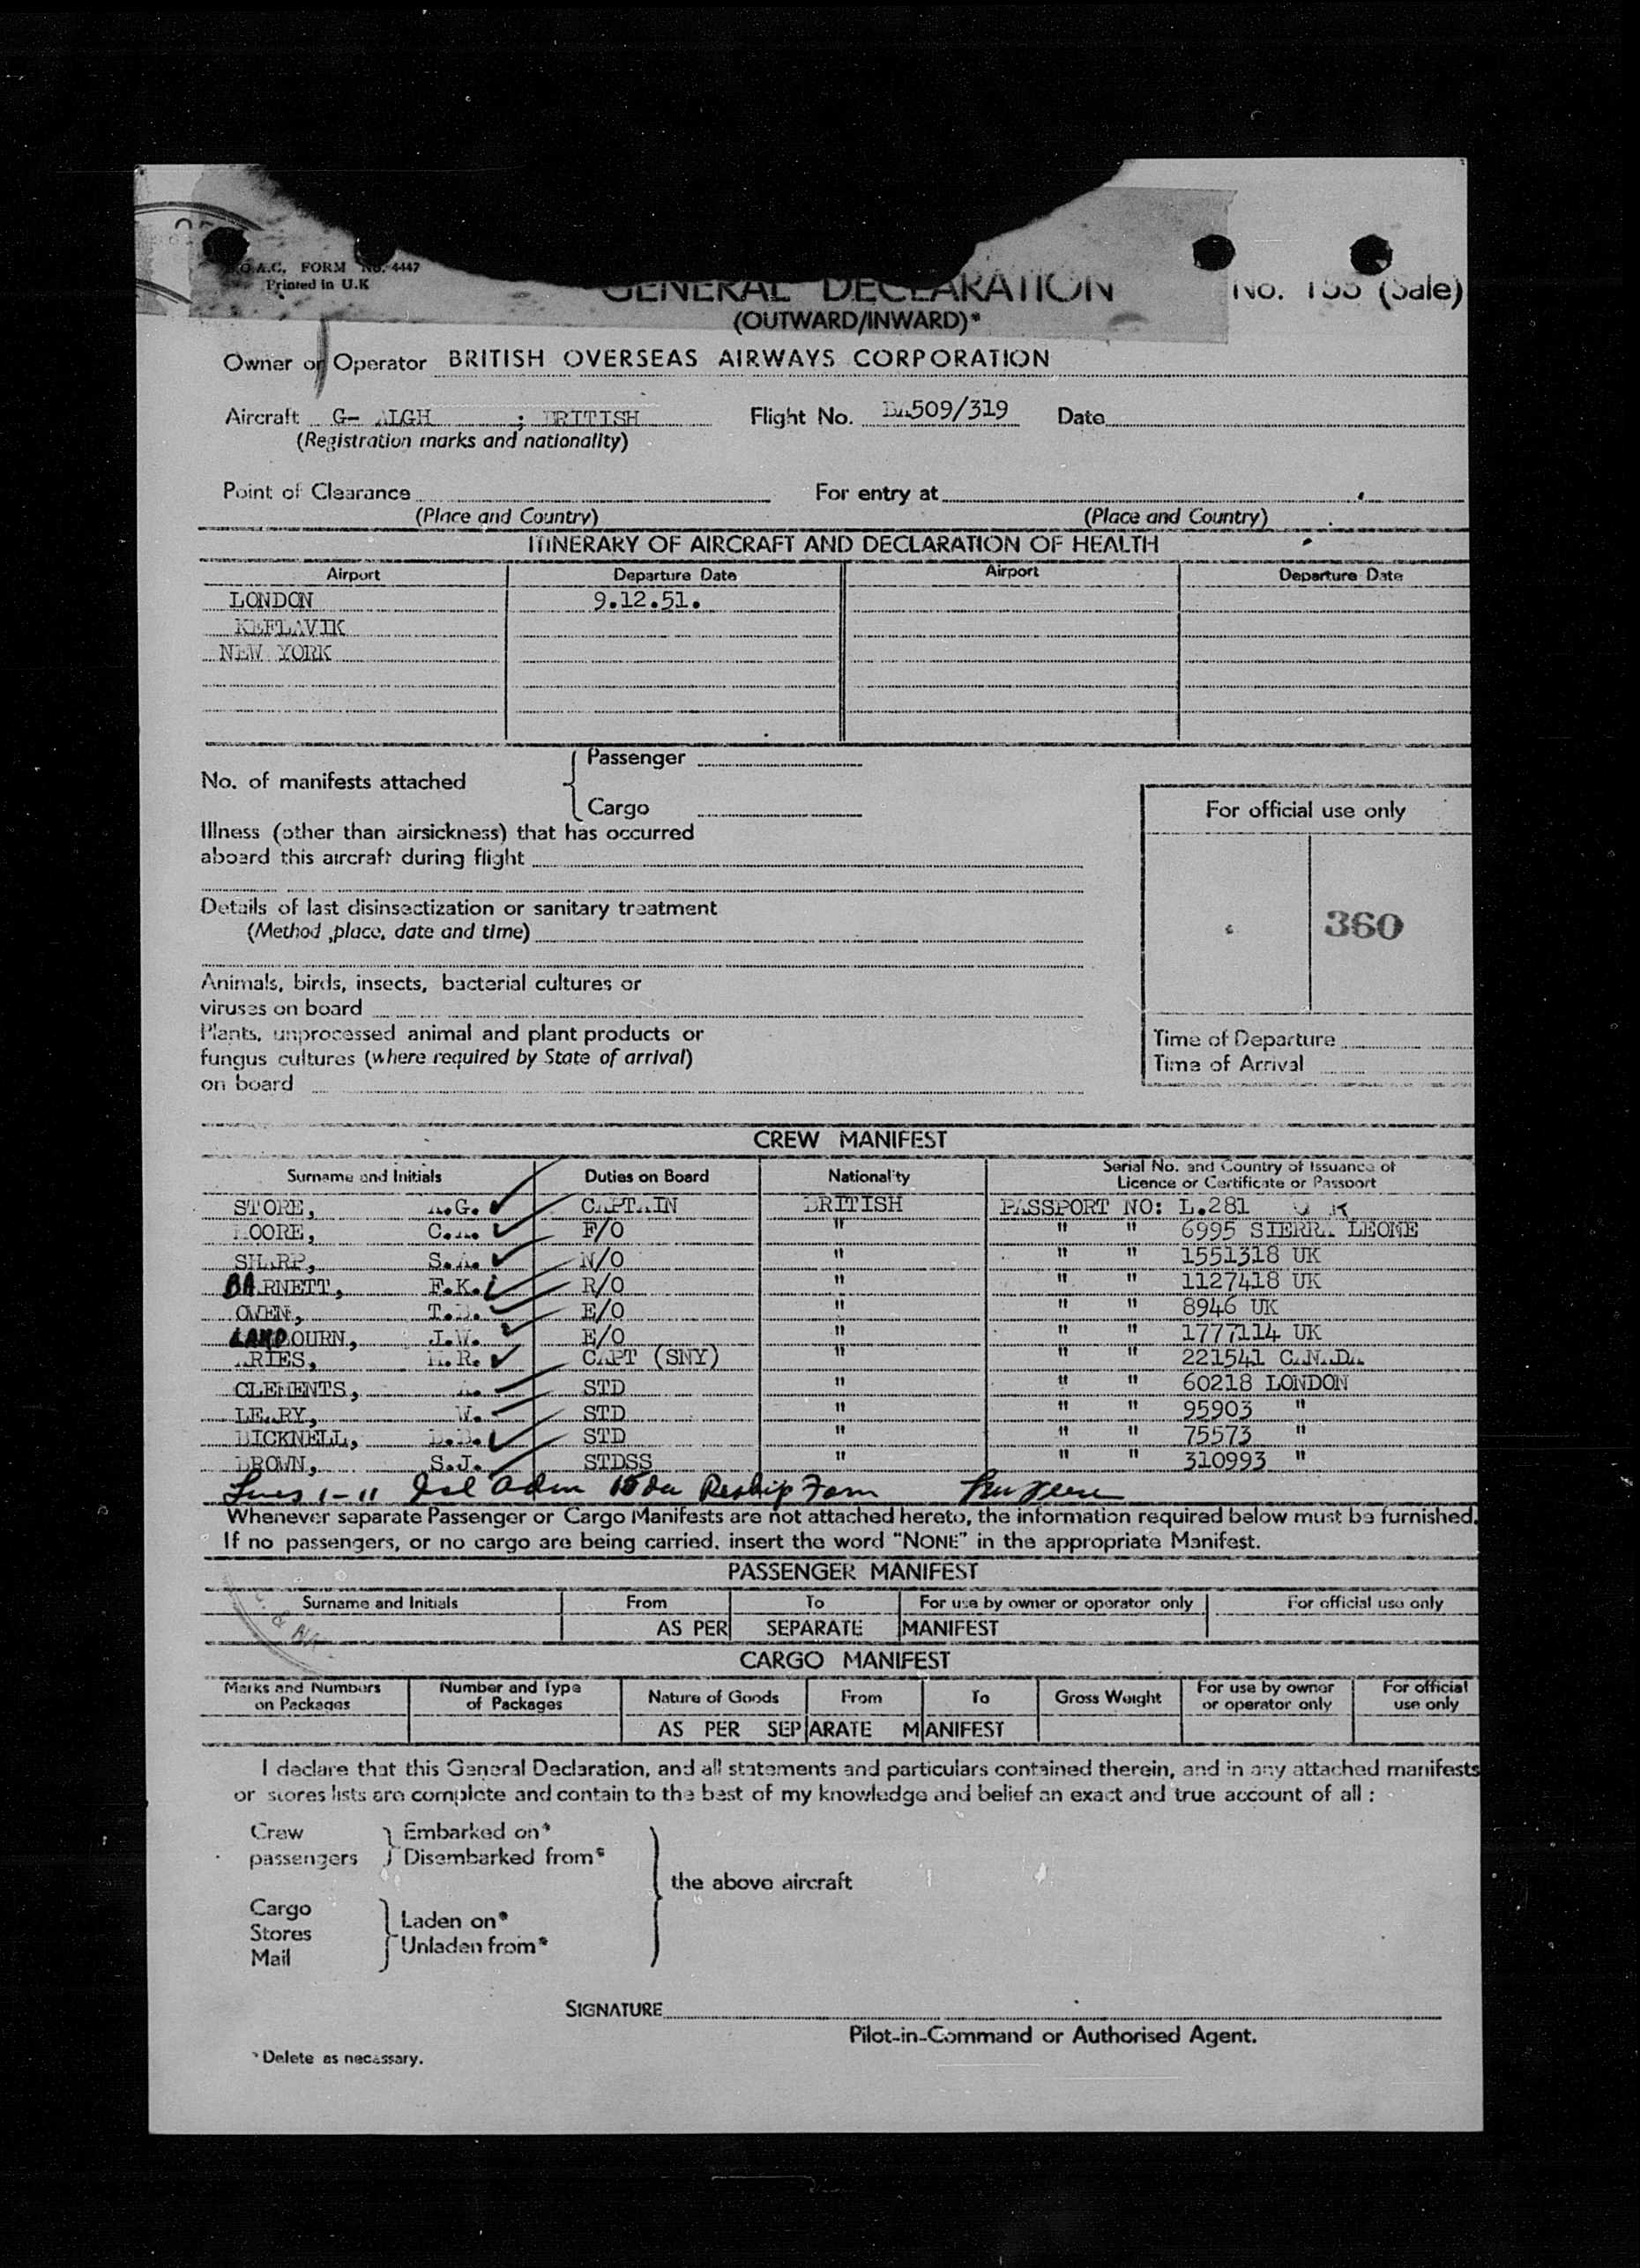 B.O.A.C. FORM No. 4447
Printed in U.K
GENERAL DECLARATION No. 155 (Sale)
(OUTWARD/INWARD)*
Owner or Operator BRITISH OVERSEAS AIRWAYS CORPORATION
Aircraft G- ALGH ; BRITISH Flight No. BA509/319 Date
(Registration marks and nationality)
Point of Clearance For entry at
(Place and Country) (Place and Country)
ITINERARY OF AIRCRAFT AND DECLARATION OF HEALTH
Airport Departure Date Airport Departure Date
LONDON 9.12.51.
KEFLAVIK
NEW YORK
Passenger
No. of manifests attached
Cargo
For official use only
Illness (other than airsickness) that has occurred
aboard this aircraft during flight
Details of last disinsectization or sanitary treatment
(Method ,place, date and time)
360
Animals, birds, insects, bacterial cultures or
viruses on board
Plants, unprocessed animal and plant products or
fungus cultures (where required by State of arrival)
on board
Time of Departure
Time of Arrival
CREW MANIFEST
Surname and Initials Duties on Board Nationality Serial No. and Country of Issuance of
Licence or Certificate or Passport
STORE, A.G. CAPTAIN BRITISH PASSPORT NO: L.281
MOORE, C.A. F/O " " " 6995 SIERRA LEONE
SHARP, S.A. N/O " " " 1551318 UK
BARNETT, F.K. R/O " " " 1127418 UK
OWEN, T.D. E/O " " " 8946 UK
LAMBOURN, J.W. E/O " " " 1777114 UK
ARIES, R. CAPT (SNY) " " " 221541 CANADA
CLEMENTS, A. STD " " " 60218 LONDON
LEARY, W. STD " " " 95903 "
BICKNELL, STD " " " 75573 "
BROWN, S.J. STDSS " " " 310993 "
Lines 1-11
Whenever separate Passenger or Cargo Manifests are not attached hereto, the information required below must be furnished.
If no passengers, or no cargo are being carried, insert the word "NONE" in the appropriate Manifest.
PASSENGER MANIFEST
Surname and Initials From To For use by owner or operator only For official use only
AS PER SEPARATE MANIFEST
CARGO MANIFEST
Marks and Numbers on Packages Number and Type of Packages Nature of Goods From To Gross Weight For use by owner or operator only For official use only
AS PER SEPARATE MANIFEST
I declare that this General Declaration, and all statements and particulars contained therein, and in any attached manifests
or stores lists are complete and contain to the best of my knowledge and belief an exact and true account of all :
Crew Embarked on*
passengers Disembarked from*
the above aircraft
Cargo
Laden on*
Stores
Unladen from*
Mail
SIGNATURE
Pilot-in-Command or Authorised Agent.
*Delete as necessary.